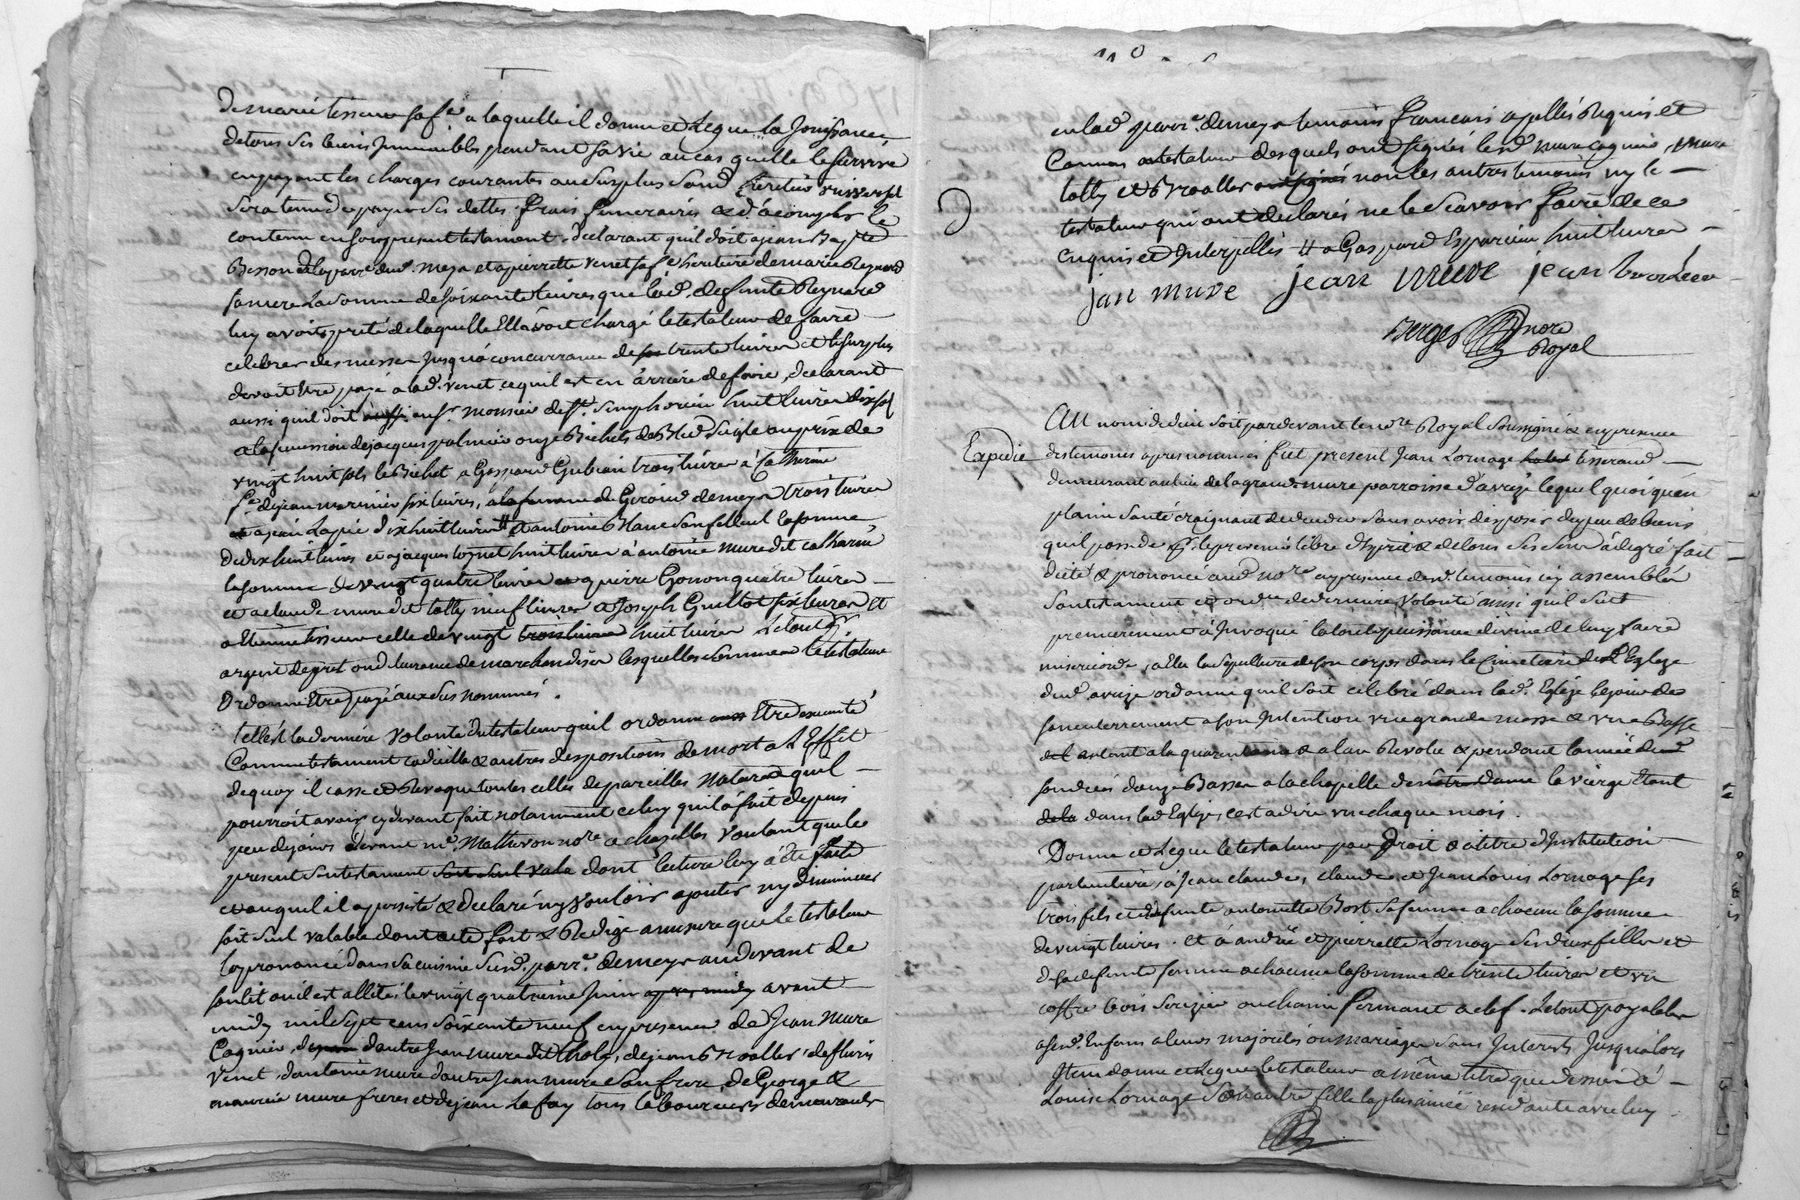 de marie tisseur sa fe. a laquelle il donne et legue la jouissance
de tous ses biens immeubles pendant sa vie au cas quelle le survive
en payant les charges courantes au surplus sond. heritier universel
sera tenu de payer ses dettes frais funeraires & d'acomplir le
contenu en son present testament, declarant quil doit a jean Bapte
Besson de la parre. dud. meys et a pierrette venet sa fe heritiere de marie Reynard
sa mere la somme de soixante livres que lad. defunte Reynard
luy avoit preté de laquelle Elle avoit chargé le testateur de faire
celebrer des messes jusqu'a concurrance de trente livres et le surplus
devoit être payé a lad. venet, ce quil est en arriere de faire, declarant
aussi quil doit a sr. monsieur de st. simphorien huit livres dix sols
a la sucession de jacques palmier onze Bichets de Bled seigle au prix de
vingt huit sols le Bichet a Gaspard Gubian trois livres a Catherine
fe. de jean marinier six livres, a la femme de Giroud de meys trois livres
a jean Lapie dix huit livres # a antoine Blanc son filleul la somme
de dix huit livres et a jacques tognet huit livres a antoine mure dit catharin
la somme de vingt quatre livres a pierre Gonon quatre livres
et a claude mure dit tolly neuf livres a joseph Guillot six livres et
a Etienne tisseur celle de vingt trois livres huit livres le tout pr.
argent de pret ou delivrance de marchandises lesquelles sommes le testateur
Ordonne Etre payé aux sus nommés.
telle est la derniere volonté du testateur quil ordonne Etre executé
Comme testament codicille & autres dispositions de mort a L'Effet
de quoy il casse et Revoque toutes celles de pareilles Natures quil
pourroit avoir cy devant fait notamment celuy quil a fait depuis
peu de jours devant me. Mathevon nore. a chazelles voulant que le
present son testament soit seul vala dont lecture luy a été faite
et auquel il a persisté & declaré ny vouloir ajouter ny diminuer
soit seul valable dont acte fait & Redigé a mesure que le testateur
la prononcé dans sa cuisine susd. parre. de meys au devant de
son lit ou il est allité le vingt quatrieme juin apres midy avant
midy mil sept cens soixante neuf en presence de Jean Mure
Cagnier, d'autre Jean mure dit thola, de jean Broalles, de fleuris
Venet, d'antoine mure d'autre Jean mure son frere, de George &
maurice mure freres et de jean La fay tous laboureurs demeurants
en lad. parre. de meys temoins francois apellés Requis et
Connus au testateur desquels ont signés lesd. mure cagnier, mure
tolly et Broalles ont signés non les autres temoins ny le
testateur qui ont declarés ne le scavoir faire de ce
Enquis et Interpellés # a Gaspard Esparcieu huit livres
jan mure jean mure jean broalles
Berger nore
Royal
Expedié
AU nom de dieu soit pardevant le nore. Royal soussigné & en presence
des temoins apres nommés fut present Jean Lornage tisserand
demeurant au lieu de la grand mure parroisse d'aveize lequel quoique en
pleine santé craignant de deceder sans avoir disposé du peu de biens
quil possede pr. le prevenir libre d'Esprit & de tous ses sens a de gré fait
dicté & prononcé aud. nore. en presence desd. temoins icy assemblés
son testament et ordre de derniere volonté ainsi quil suit
premierement a Invoqué la toute puissance divine de luy faire
misericorde, eslu la sepulture de son corps dans le Cimetiere de L'Eglize
dud. aveize ordonne quil soit celebré dans lad. Eglize le jour de
son enterrement a son Intention une grande messe & une Basse
autant a la quarantaine & a l'an Revolu & pendant l'année de son
son decés douze Basses a la chapelle de nôtre dame la vierge etant
dans lad. Eglize, c'est a dire une chaque mois.
Donne et Legue le testateur par Droit & a titre d'Institution
particuliere, a Jean claude, claude et Jean Louis Lornage ses
trois fils et defunte antoinette Bost sa femme a chacun la somme
de vingt livres. et a andrée et pierrette Lornage ses deux filles et
de sa defunte femme a chacune la somme de trente livres et un
coffre bois serizier ou chaine fermant a clef. Le tout payable
a sesd. Enfans a leurs majorités ou mariages sans Interets jusqu'alors
Item donne et Legue le testateur a même titre que dessus a
Louise Lornage son autre fille la plus ainée residante avec luy